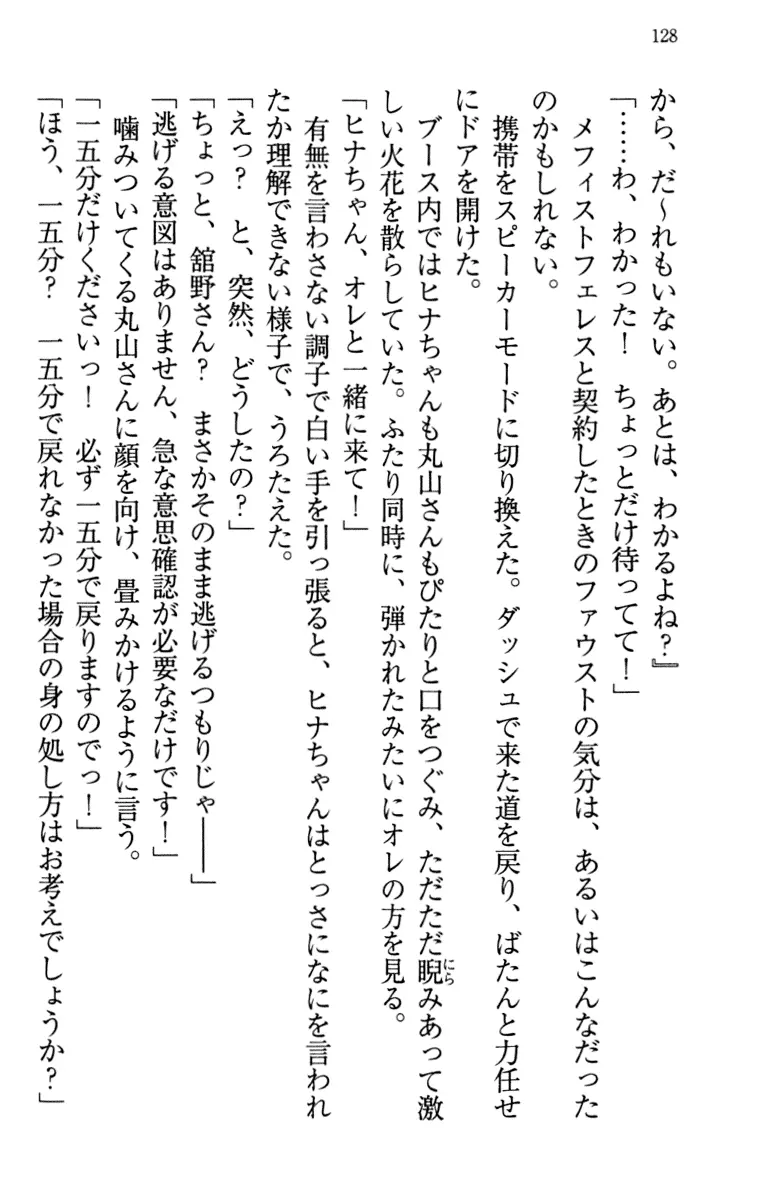 128
から、だ〜れもいない。あとは、わかるよね？』
「……わ、わかった！　ちょっとだけ待ってて！」
　メフィストフェレスと契約したときのファウストの気分は、あるいはこんなだった
のかもしれない。
　携帯をスピーカーモードに切り換えた。ダッシュで来た道を戻り、ばたんと力任せ
にドアを開けた。
　ブース内ではヒナちゃんも丸山さんもぴたりと口をつぐみ、ただただ睨みあって激
しい火花を散らしていた。ふたり同時に、弾かれたみたいにオレの方を見る。
「ヒナちゃん、オレと一緒に来て！」
　有無を言わさない調子で白い手を引っ張ると、ヒナちゃんはとっさになにを言われ
たか理解できない様子で、うろたえた。
「えっ？　と、突然、どうしたの？」
「ちょっと、舘野さん？　まさかそのまま逃げるつもりじゃ――」
「逃げる意図はありません、急な意思確認が必要なだけです！」
　噛みついてくる丸山さんに顔を向け、畳みかけるように言う。
「一五分だけくださいっ！　必ず一五分で戻りますのでっ！」
「ほう、一五分？　一五分で戻れなかった場合の身の処し方はお考えでしょうか？」